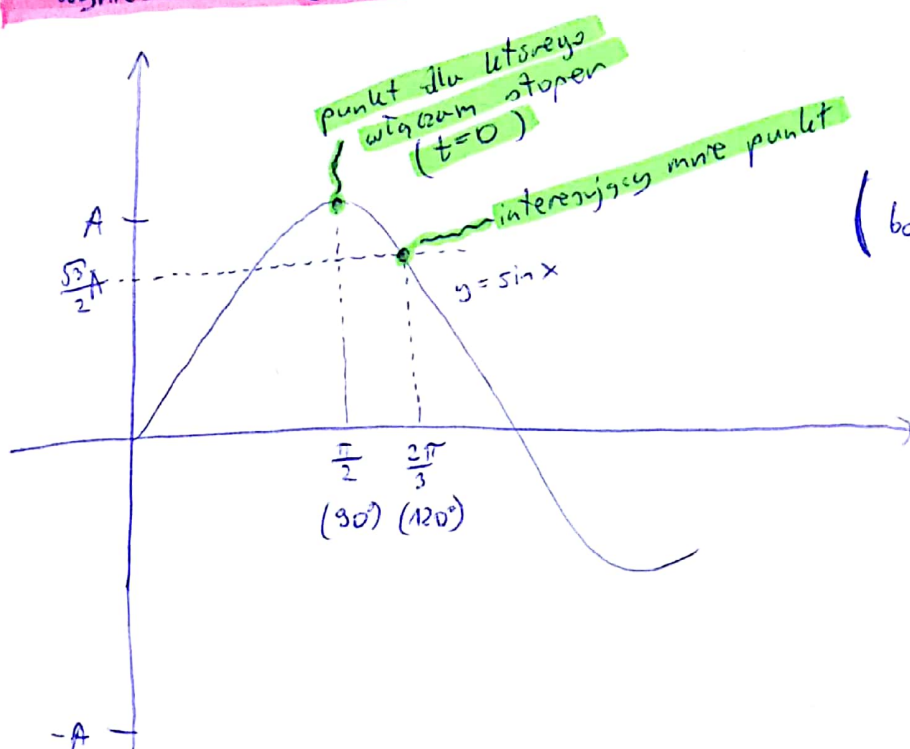 punkt dla którego
włączam stoper
(t=0)
interesujący mnie punkt
A
(
√3/2 A
y = sin x
π/2
2π/3
(90°) (120°)
-A